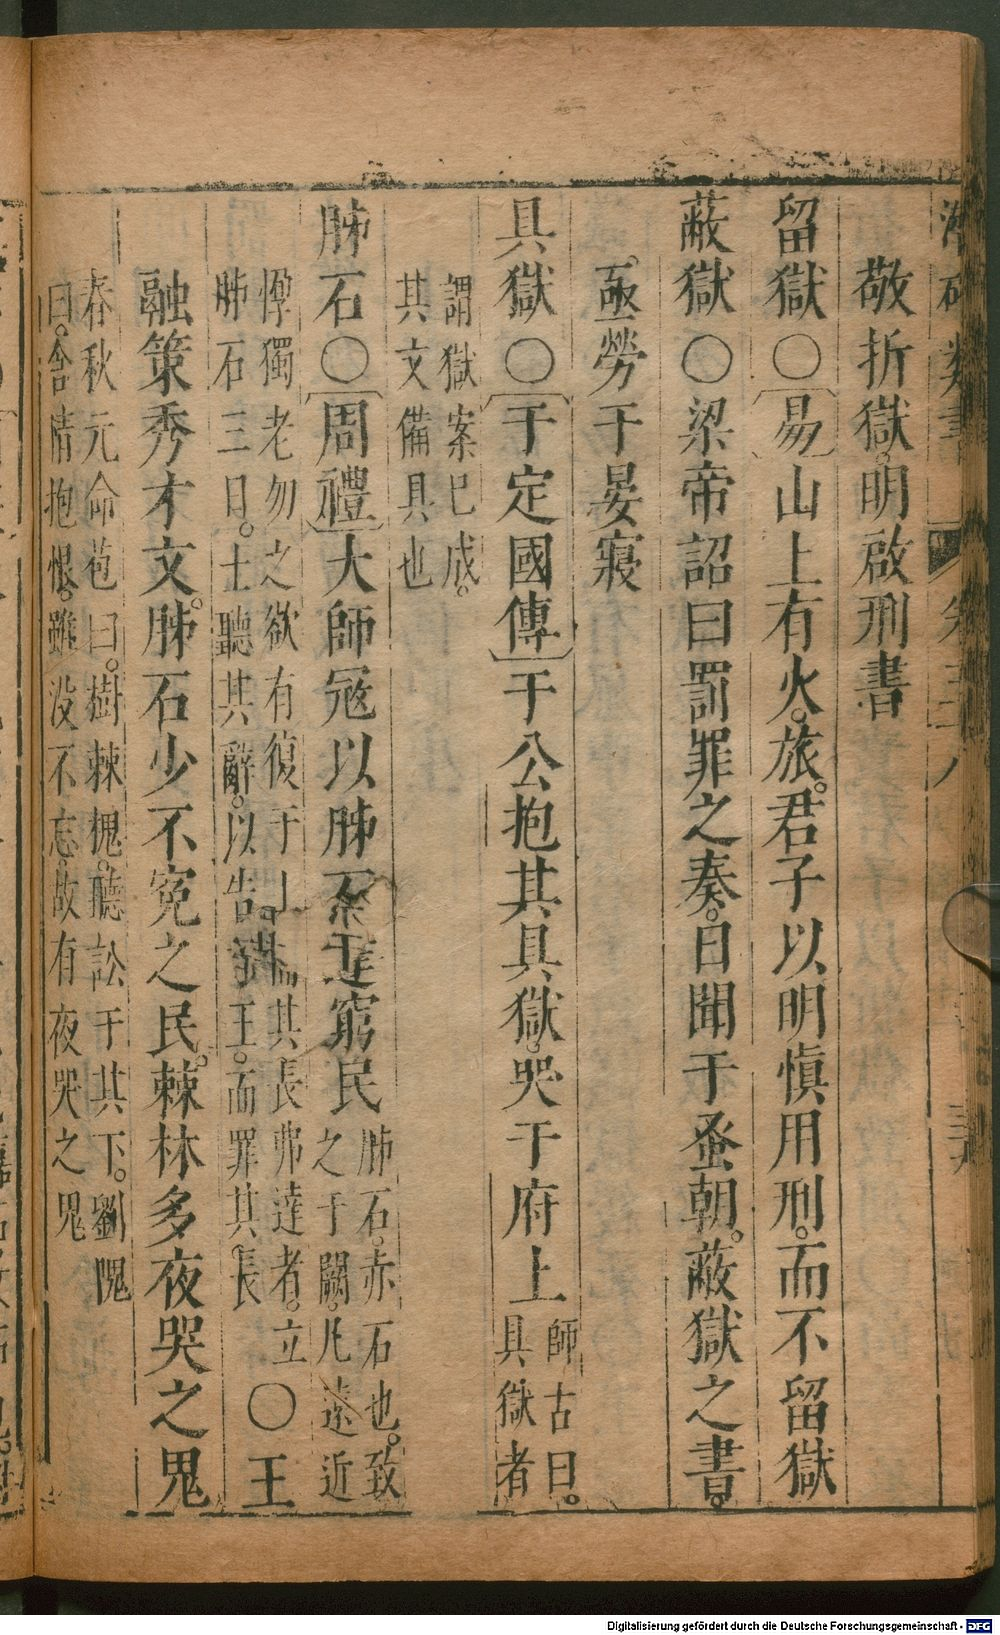 敬折獄。明啟刑書
留獄〇易山上有火。旅。君子以明慎用刑。而不留獄
蔽獄〇梁帝詔曰罰罪之奏。日聞于蚤朝。蔽獄之書。
亟勞干晏寢
具獄〇于定國傳于公抱其具獄。哭于府上師古曰。具獄者
謂獄案已成。其文備具也
肺石〇周禮大師𡨥以肺石達窮民肺石。赤石也。致之于闕。凡遠近
惸獨老勿之欲有復于上而其長弗達者。立肺石三日。士聽其辭。以告于王。而罪其長〇王
融策秀才文。肺石少不寃之民。棘林多夜哭之鬼
春秋元命苞曰。樹棘槐。聽訟于其下。劉隗曰。含情抱恨。雖没不忘。故有夜哭之鬼
Digitalisierung gefördert durch die Deutsche Forschungsgemeinschaft - DFG